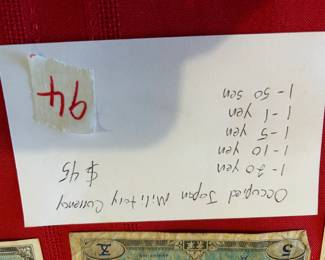 Occupied Japan Military Currency
1 - 20 yen
1 - 10 yen
1 - 5 yen
1 - 1 yen
1 - 50 sen
$45
94
5